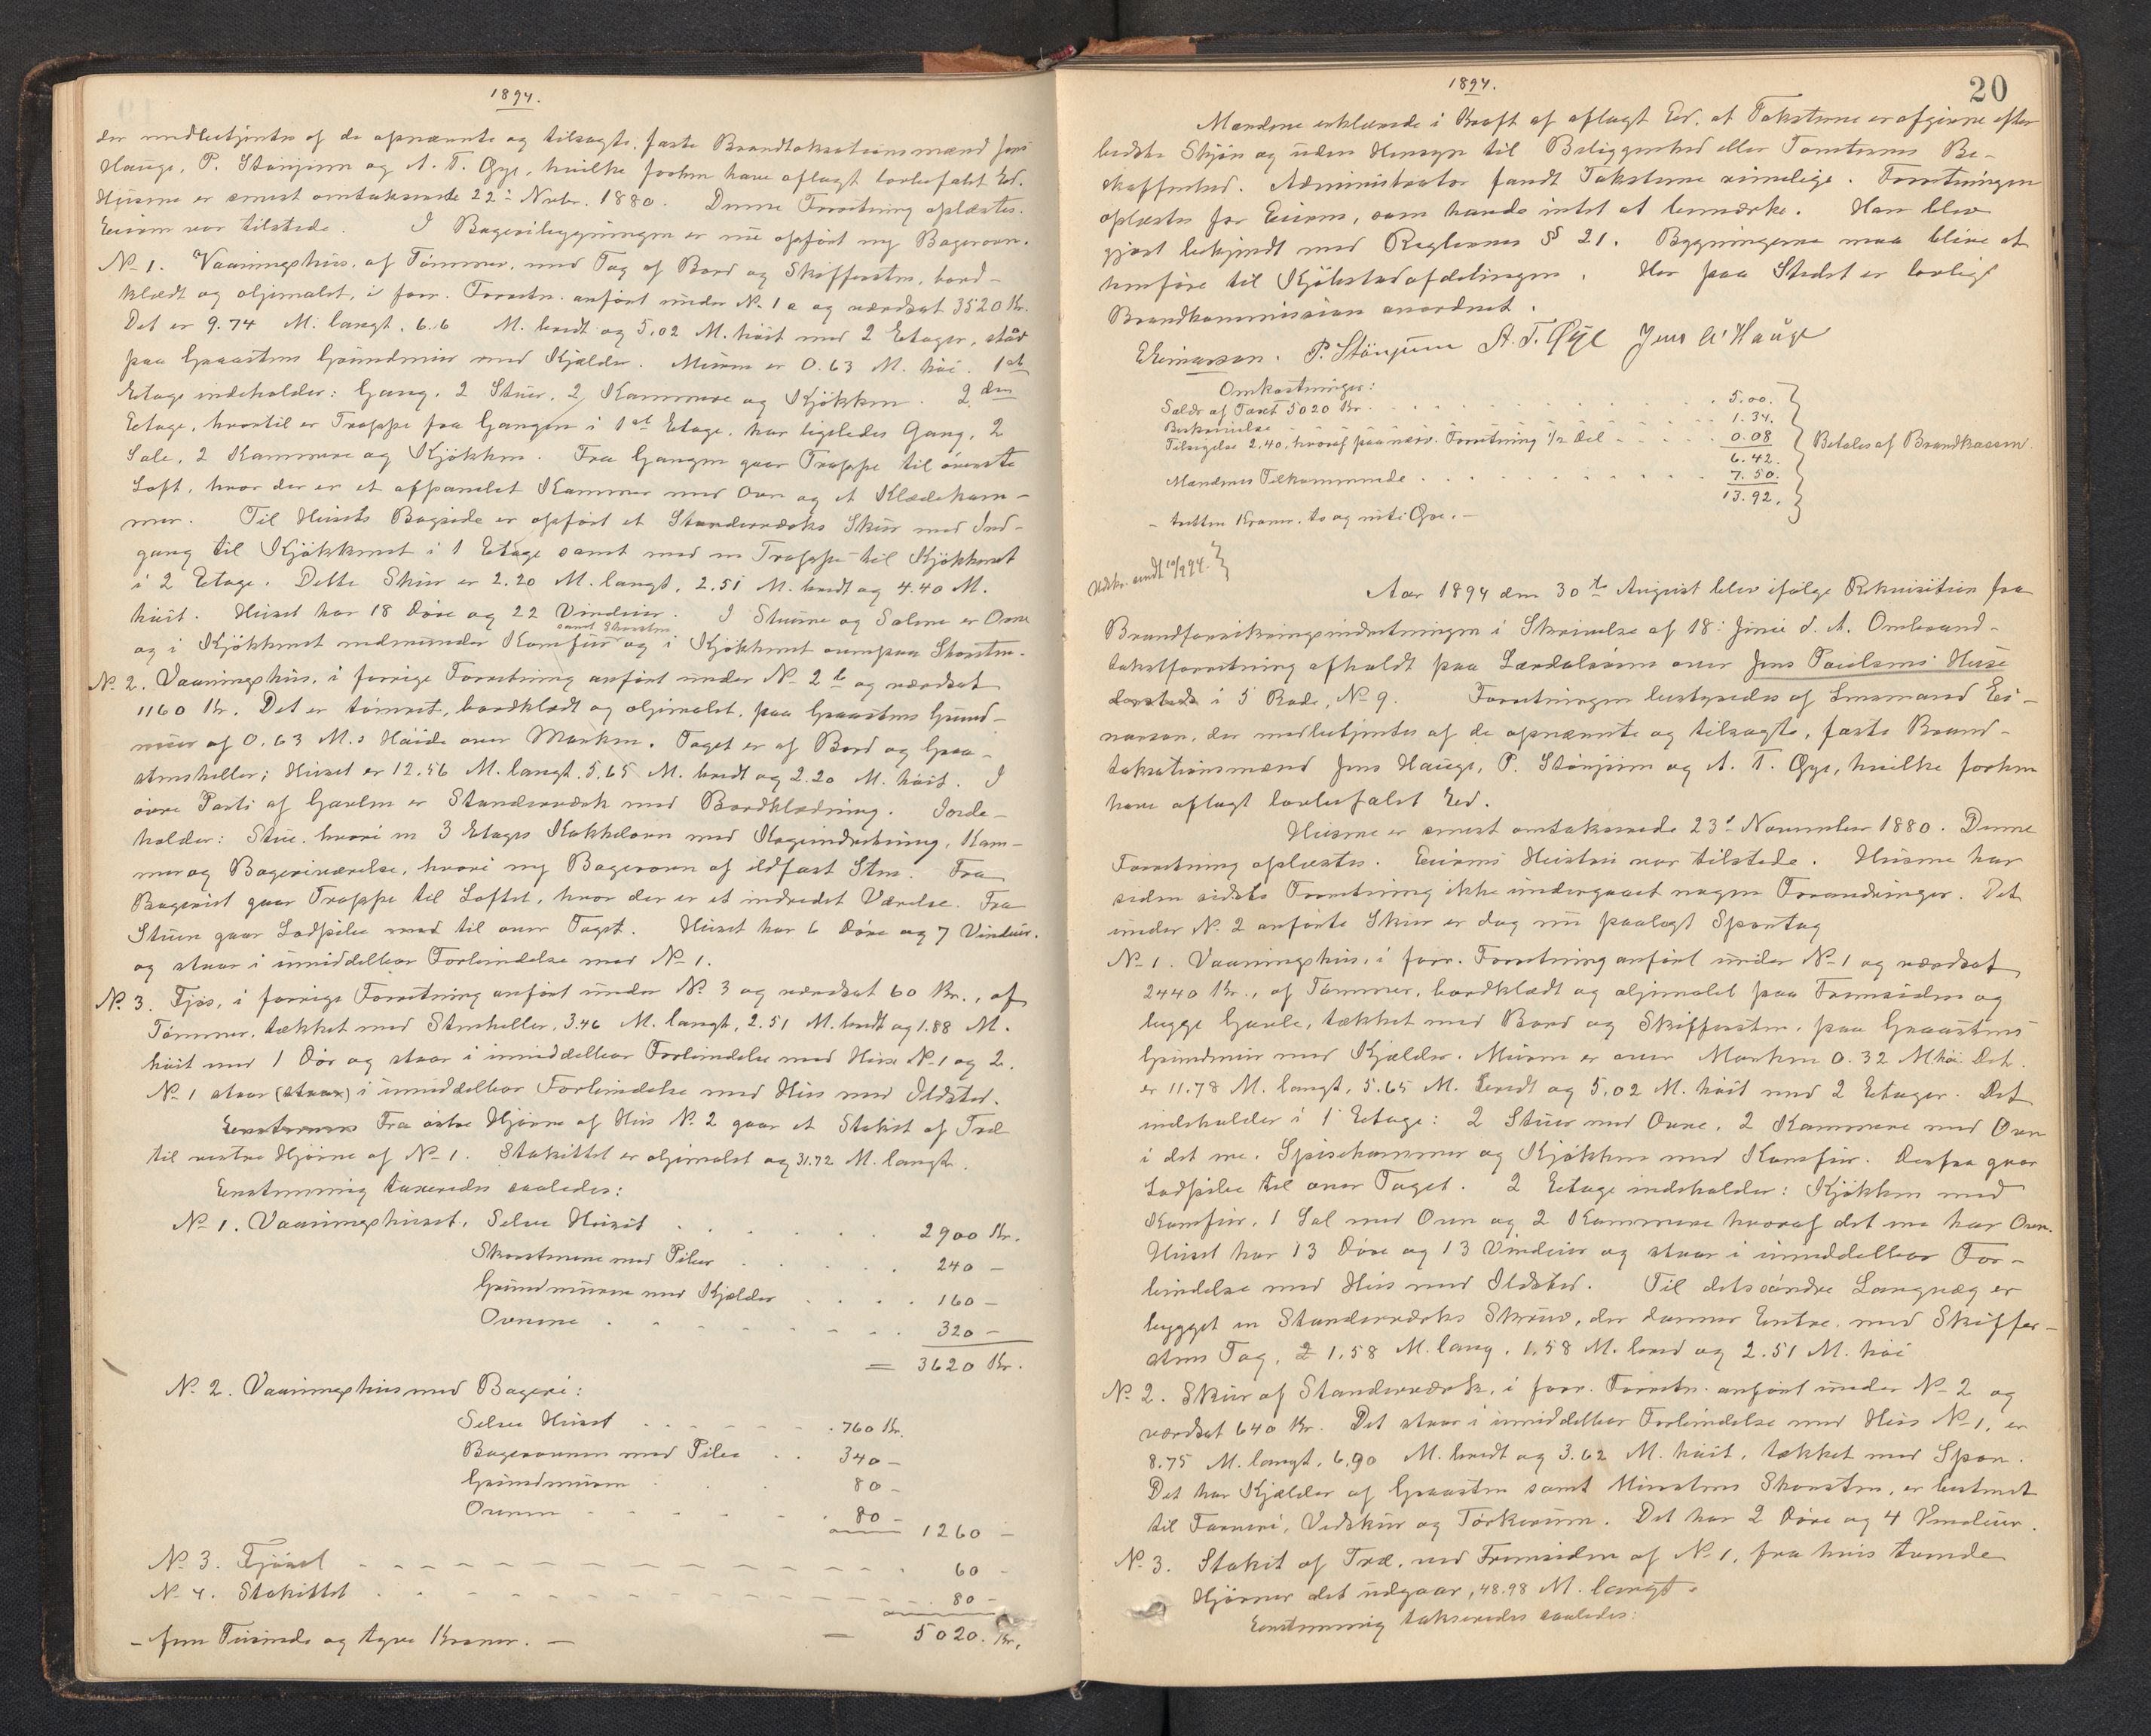 1894.
der medbetjentes af de opnævnte og tilsagte, faste Brandtakstationsmænd Jens
Hauge, P. Stönjum og A. T. Øye, hvilke forhen have aflagt lovbefalet Ed.
Husene er senest omtakserede 22: Novbr. 1880. Denne Forretning oplæstes.
Eieren var tilstede. I Bageribygningen er nu opført ny Bagerovn.
No 1. Vaaningshus, af Tömmer, med Tag af Bord og Skiffersten, bord-
klædt og oljemalet, i forr. Forretn. anført under No 1 a og værdsat 3520 Kr.
Det er 9.74 M. langt, 6.6 M. bredt og 5,02 M. höit med 2 Etager, staar
paa Graastens Grundmur med Kjælder. Muren er 0.63 M. høi. 1ste
Etage indeholder: Gang, 2 Stuer, 2 Kammere og Kjøkken. 2den
Etage, hvortil er Trappe fra Gangen i 1ste Etage, har ligeledes Gang, 2
Sale, 2 Kammere og Kjøkken. Fra Gangen gaar Trappe til överste
Loft, hvor der er et afpanelet Kammer med Ovn og et Klædekam-
mer. Til Husets Bagside er opført et Standerværks Skur med Ind-
gang til Kjøkkenet i 1 Etage samt med en Trappe til Kjøkkenet
i 2 Etage. Dette Skur er 2.20 M. langt, 2.51 M. bredt og 4.40 M.
höit. Huset har 18 Døre og 22 Vinduer. I Stuerne og Salene er Ovne
samt Skorsten
og i Kjøkkenet nedenunder Komfur og i Kjøkkenet ovenpaa Skorsten.
No 2. Vaaningshus, i forrige Forretning anført under No 2 b og værdsat
1160 Kr. Det er tömret, bordklædt og oljemalet, paa Graastens Grund-
mur af 0.63 M.s Höide over Marken. Taget er af Bord og Graa-
stensheller; Huset er 12.56 M. langt, 5.65 M. bredt og 2.20 M. höit. I
övre Parti af Gavlen er Standerværk med Bordklædning. Inde-
holder: Stue, hvori en 3 Etages Kakkelovn med Kogeindretning, Kam-
mer og Bageriværelse, hvori ny Bagerovn af ildfast Sten. Fra
Bageriet gaar Trappe til Loftet, hvor der er et indredet Værelse. Fra
Stuen gaar Lodpibe med til over Taget. Huset har 6 Døre og 7 Vinduer.
og staar i umiddelbar Forbindelse med No 1.
No 3. Fjøs, i forrige Forretning anført under No 3 og værdsat 60 Kr., af
Tömmer, tækket med Stenheller, 3.46 M. langt, 2.51 M. bredt og 1.88 M.
höit med 1 Dör og staar i umiddelbar Forbindelse med Huse No 1 og 2.
No 1 staar (staar) i umiddelbar Forbindelse med Hus med Ildsted.
Fra östre Hjörne af Hus No 2 gaar et Stakit af Træ
til vestre Hjörne af No 1. Stakittet er oljemalet og 31.72 M. langt.
Eenstemmig taxeredes saaledes:
No 1. Vaaningshuset. Selve Huset . . . . . 2900 Kr.
Skorstenene med Piber . . . . . 240 -
Grundmuren med Kjælder . . . . 160 -
Ovnene . . . . . . . . 320 -
= 3620 Kr.
No 2. Vaaningshus med Bageri:
Selve Huset . . . . . . 760 Kr.
Bagerovnen med Pibe . . 340 -
Grundmuren . . 80 -
Ovnen - - - - - 80 -
1260 -
No 3. Fjöset - - - - - - - - - 60 -
No 4. Stakittet . . - - - - - - - 80 -
- fem Tusinde og tyve Kroner. - = 5020. Kr.
1894.
20
Mændene erklærede i Kraft af aflagt Ed, at Taksterne er afgivne efter
bedste Skjön og uden Hensyn til Beliggenhed eller Tomternes Be-
skaffenhed. Administrator fandt Taksterne rimelige. Forretningen
oplæstes for Eieren, som havde intet at bemærke. Han blev
gjort bekjendt med Reglernes § 21. Bygningerne maa blive at
henføre til Kjöbstadafdelingen. Her paa Stedet er lovlig
Brandkommission anordnet.
E Einarsen. P. Stönjum A. T. Øye Jens A. Hauge
Omkostninger:
Salær af Taxt 5020 Kr. . . . . . . . . 5.00.
Beskrivelse - - - - - - - 1.34.
Tilsigelse 2.40, hvoraf paa nærv. Forretning 1/12 Del - - - 0.08
6.42.
Mændenes Tilkommende . . . . . . . . 7.50.
13.92.
Betales af Brandkassen.
- tretten Kroner, to og niti Øre. -
Udskr. sendt 10/9 94.
Aar 1894 den 30te August blev ifølge Rekvisition fra
Brandforsikringsindretningen i Skrivelse af 18: Juni d. A. Ombrand-
takstforretning afholdt paa Lærdalsören over Jens Paulsens Huse
dersteds i 5 Rode, No 9. Forretningen bestyredes af Lensmand Ei-
narsen, der medbetjentes af de opnævnte og tilsagte, faste Brand-
takstationsmænd Jens Hauge, P. Stönjum og A. T. Øye, hvilke forhen
have aflagt lovbefalet Ed.
Husene er senest omtakserede 23' November 1880. Denne
Forretning oplæstes. Eierens Hustru var tilstede. Husene har
siden sidste Forretning ikke undergaaet nogen Forandringer. Det
under No 2 anførte Skur er dog nu paalagt Spontag
No 1. Vaaningshus, i forr. Forretning anført under No 1 og værdsat
2440 Kr., af Tömmer, bordklædt og oljemalet paa Fremsiden og
begge Gavle, tækket med Bord og Skiffersten, paa Graastens
Grundmur med Kjælder. Muren er over Marken 0.32 M höi. Det
er 11.78 M. langt, 5.65 M. bredt og 5,02 M. höit med 2 Etager. Det
indeholder i 1 Etage: 2 Stuer med Ovne, 2 Kammere med Ovn
i det ene, Spisekammer og Kjøkken med Komfur. Derfra gaar
Lodpibe til over Taget. 2 Etage indeholder: Kjøkken med
Komfur, 1 Sal med Ovn og 2 Kammere hvoraf det ene har Ovn.
Huset har 13 Døre og 13 Vinduer og staar i umiddelbar For-
bindelse med Hus med Ildsted. Til dets söndre Langvæg er
bygget en Standerværks Skur, der danner Entre, med Skiffer-
stens Tag, 1.58 M. lang, 1.58 M. bred og 2.51 M. höi
No 2. Skur af Standerværk, i forr. Forretn. anført under No 2 og
værdsat 640 Kr. Det staar i umiddelbar Forbindelse med Hus No 1, er
8.75 M. langt, 6.90 M. bredt og 3.62 M. höit, tækket med Spon.
Det har Kjælder af Graasten samt Murstens Skorsten, er bestemt
til Farveri, Vedskur og Törkerum. Det har 2 Døre og 4 Vinduer.
No 3. Stakit af Træ, ved Fremsiden af No 1, fra hvis tvende
Hjörner det udgaar, 48.98 M. langt.
Eenstemmig takseredes saaledes: